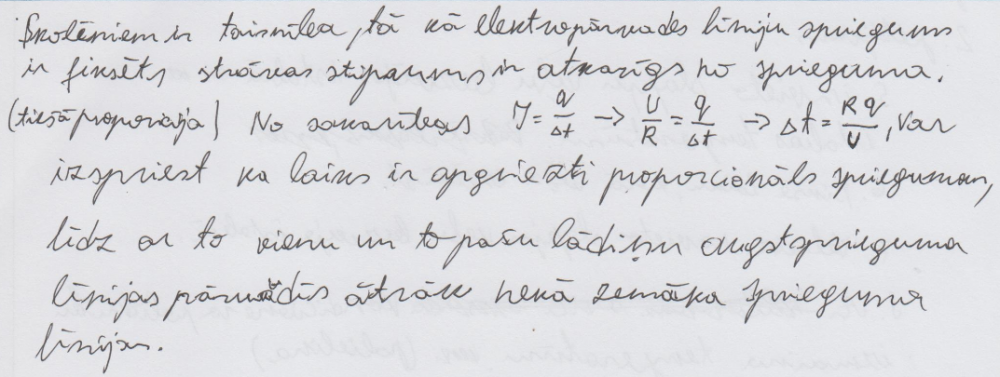 Skolēniem ir taisnība, tā kā elektropārvades līniju spriegums
ir fiksēts, strāvas stiprums ir atkarīgs no sprieguma.
(tiešā proporcija) No sakarības I = q/Δt → U/R = q/Δt → Δt = Rq/U, var
izspriest ka laiks ir apgriezti proporcionāls spriegumam,
līdz ar to vienu un to pašu lādiņu augstsprieguma
līnijas pārvadīs ātrāk nekā zemāka sprieguma
līnijas.